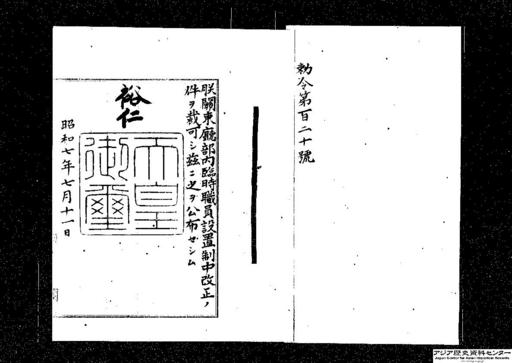 勅令第百二十號
朕關東廳部内臨時職員設置制中改正ノ
件ヲ裁可シ茲ニ之ヲ公布セシム
裕仁
天皇
御璽
昭和七年七月十一日
アジア歴史資料センター
Japan Center for Asian Historical Records